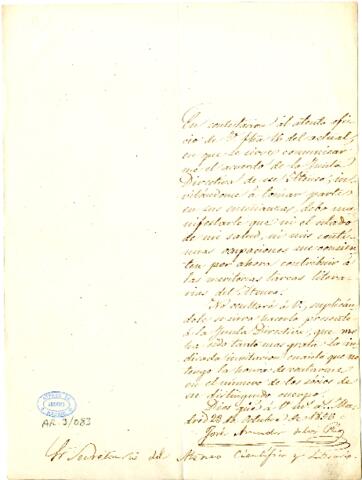 En contestacion al atento ofi-
cio de V. fha 14 del actual,
en que se sirve comunicar
me el acuerdo de la Junta
Directiva de ese Ateneo, in-
vitándome á tomar parte
en sus enseñanzas, debo ma
nifestarle que ni el estado
de mi salud, ni mis conti-
nuas ocupaciones me consien
ten por ahora contribuir á
las meritorias tareas litera-
rias del Ateneo.
No ocultaré á V., suplicán-
dole se sirva hacerlo presente
á la Junta Directiva, que me
ha sido tanto mas grata la in
dicada invitacion cuanto que no
tengo la honra de contarme
en el número de los sócios de
su distinguido cuerpo.
Dios gue á V. ms as. Ma-
drid 28 de Octubre de
José Amador de los Rios
AR-3/083
Sr Secretario del Ateneo Cientifico y Literario.